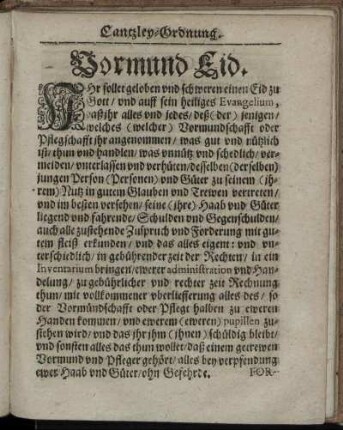 Cantzley-Ordnung.
Vormund Eid.
IHr sollet geloben vnd schweren einen Eid zu
Gott / vnd auff sein heiliges Evangelium,
daß ihr alles vnd jedes / deß (der) jenigen /
welches (welcher) Vormundschafft oder
Pflegschafft ihr angenommen / was gut vnd nützlich
ist / thun vnd handlen / was vnnütz vnd schedlich / ver-
meiden / vnterlassen vnd verhüten / desselben (derselben)
jungen Person (Personen) vnd Güter zu seinem (ih-
rem) Nutz in gutem Glauben vnd Trewen vertreten /
vnd im besten versehen / seine (ihre) Haab vnd Güter
ligend vnd fahrende / Schulden vnd Gegenschulden /
auch alle zustehende Zuspruch vnd Forderung mit gu-
tem fleiß erkunden / vnd das alles eigent: vnd vn-
terschiedlich / in gebührender zeit der Rechten / in ein
Inventarium bringen / ewerer administration vnd Han-
delung / zu gebührlicher vnd rechter zeit Rechnung
thun / mit vollkommener vberlieferung alles des / so
der Vormündschafft oder Pflege halben zu eweren
Handen kommen / vnd ewerem (eweren) pupillen zu-
stehen wird / vnd das ihr ihm (ihnen) schüldig bleibt /
vnd sonsten alles das thun wollet / daß einem getrewen
Vormund vnd Pfleger gehört / alles bey verpfendung
ewer Haab vnd Güter / ohn Gefehrde.
FOR-